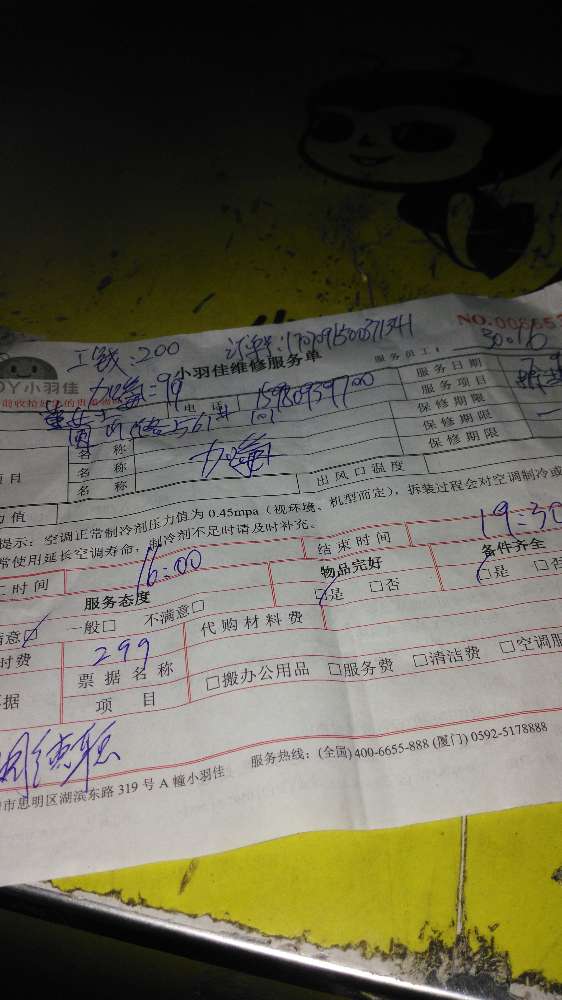 工钱:200 订单号:1707091500371341 NO.00
小羽佳维修服务单 服务员工: 30016
小羽佳
加氟:99 电话 15980939700 服务日期
服务项目
561# 101 保修期限
名称 保修期限
名称 加氟 保修期限
名称
项目 出风口温度
力值
提示: 空调正常制冷剂压力值为 0.45mpa (视环境、机型而定), 拆装过程会对空调制冷或
常使用延长空调寿命, 制冷剂不足时请及时补充。
时间 16:00 结束时间 19:30
服务态度 物品完好 备件齐全
满意□ 一般□ 不满意□ □是 □否 □是 □否
时费 299 代购材料费
票据 票据名称 □搬办公用品 □服务费 □清洁费 □空调服
项目
服务热线: (全国) 400-6655-888 (厦门) 0592-5178888
市思明区湖滨东路 319 号 A 幢小羽佳